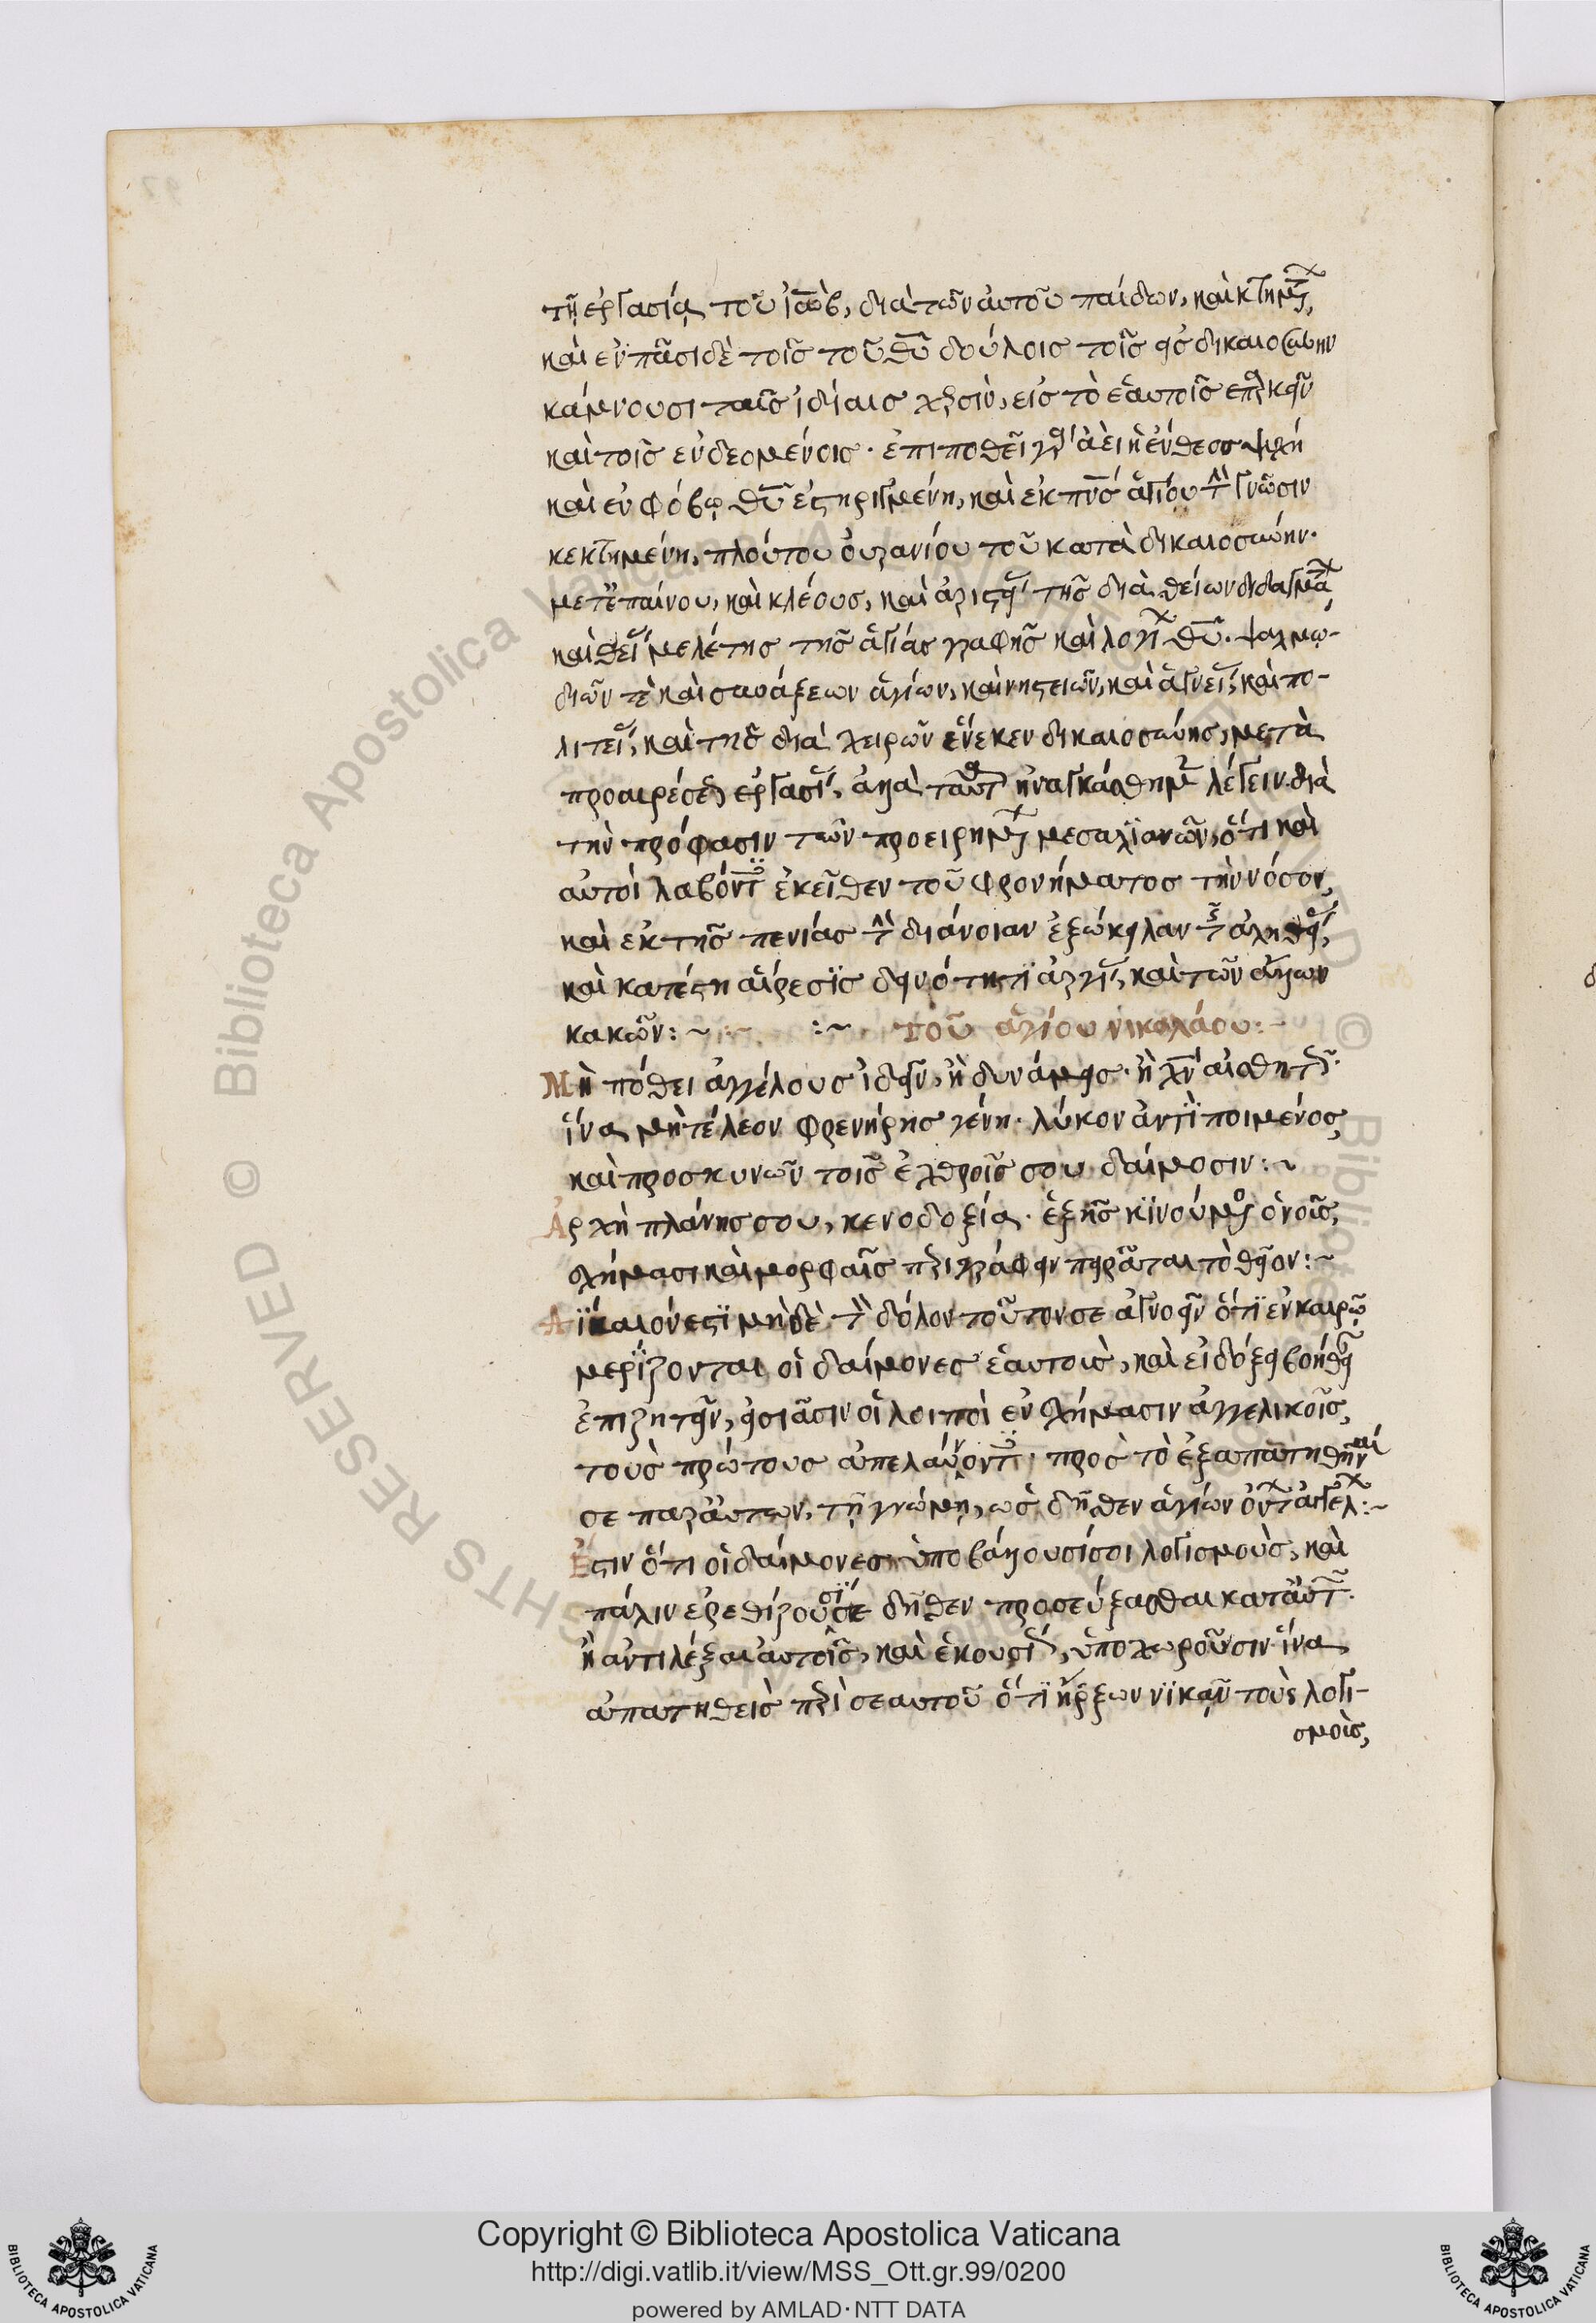 τῇ ἐργασίᾳ τοῦ ἰὼβ, διὰ τῶν αὐτοῦ παίδων, καὶ κτημτ,
καὶ ἐν πᾶσι δὲ τοῖς τοῦ θῦ δούλοις τοῖς εἰς δικαιοσύνην
κάμνουσι ταῖς ἰδίαις χερσὶν, εἰς τὸ ἑαυτοῖς
καὶ τοῖς ἐνδεομένοις. ἐπιποθεῖ γὰρ ἀεὶ ἡ ἔνθεος ψυχή
καὶ ἐν φόβῳ θῦ ἐστηριγμένη, καὶ ἐκ πνς ἁγίου τὴν γνῶσιν
κεκτημένη, πλούτου οὐρανίου τοῦ κατὰ δικαιοσύνην.
μετ' ἐπαίνου, καὶ κλέους, καὶ τῆς διὰ θείων διδαγμάτ
καὶ θεί μελέτης τῆς ἁγίας γραφῆς καὶ λογί θῦ. ψαλμω-
διῶν τὲ καὶ συνάξεων ἁγίων, καὶ νηστειῶν, καὶ ἁγνεί, καὶ πο-
λιτεί, καὶ τῆς διὰ χειρῶν ἕνεκεν δικαιοσύνης, μετὰ
προαιρέσεως ἐργασί, ἀλλὰ ταῦτ ἠναγκάσθημεν λέγειν διὰ
τὴν πρόφασιν τῶν προειρημ μεσαλιανῶν, ὅτι καὶ
αὐτοὶ λαβόντες ἐκεῖθεν τοῦ φρονήματος τὴν νόσον,
καὶ ἐκ τῆς πενίας τὴν διάνοιαν ἐξώκειλαν τῆς ἀληθεί,
καὶ κατέστη αἵρεσις δεινότητι ἀργί, καὶ τῶν ἄλλων
κακῶν:~ :~ :~ τοῦ ἁγίου νικολάου:~
Μὴ πόθει ἀγγέλους ἰδεῖν, ἢ δυνάμεις. ἢ χν αἰσθητῶς.
ἵνα μὴ τέλεον φρενήρης γένῃ. λύκον ἀντὶ ποιμένος,
καὶ προσκυνῶν τοῖς ἐχθροῖς σου δαίμοσιν:~
Ἀρχὴ πλάνης σου, κενοδοξία. ἐξ ἧς κινούμενος ὁ νοῦς,
σχήμασι καὶ μορφαῖς περιγράφειν πειρᾶται τὸ θεῖον:~
μηδὲ τὸν δόλον τοῦτον σε ἀγνοεῖν ὅτι ἐν καιρῷ
μερίζονται οἱ δαίμονες ἑαυτοὺς, καὶ εἰ δόξει βοήθει
ἐπιζητεῖν, εἰσιᾶσιν οἱ λοιποὶ ἐν σχήμασιν ἀγγελικοῖς,
τοὺς πρώτους ἀπελαύνοντες. πρὸς τὸ ἐξαπατηθῆναί
σε παρ' αὐτων, τῇ γνώμῃ, ὡς δῆθεν ἁγίων ὄντ ἀγγελ:~
Ἔστιν ὅτι οἱ δαίμονες ὑποβάλλουσί σοι λογισμοὺς, καὶ
πάλιν ἐρεθίζουσί σε δῆθεν προσεύξασθαι κατ' αὐτ.
ἢ ἀντιλέξαι αὐτοῖς, καὶ ἑκουσίως, ὑποχωροῦσιν ἵνα
ἀπατηθεὶς περὶ σεαυτοῦ ὅτι ἤρξω νικᾶν τοὺς λογι-
σμοὺς,
Copyright © Biblioteca Apostolica Vaticana
http://digi.vatlib.it/view/MSS_Ott.gr.99/0200
powered by AMLAD·NTT DATA